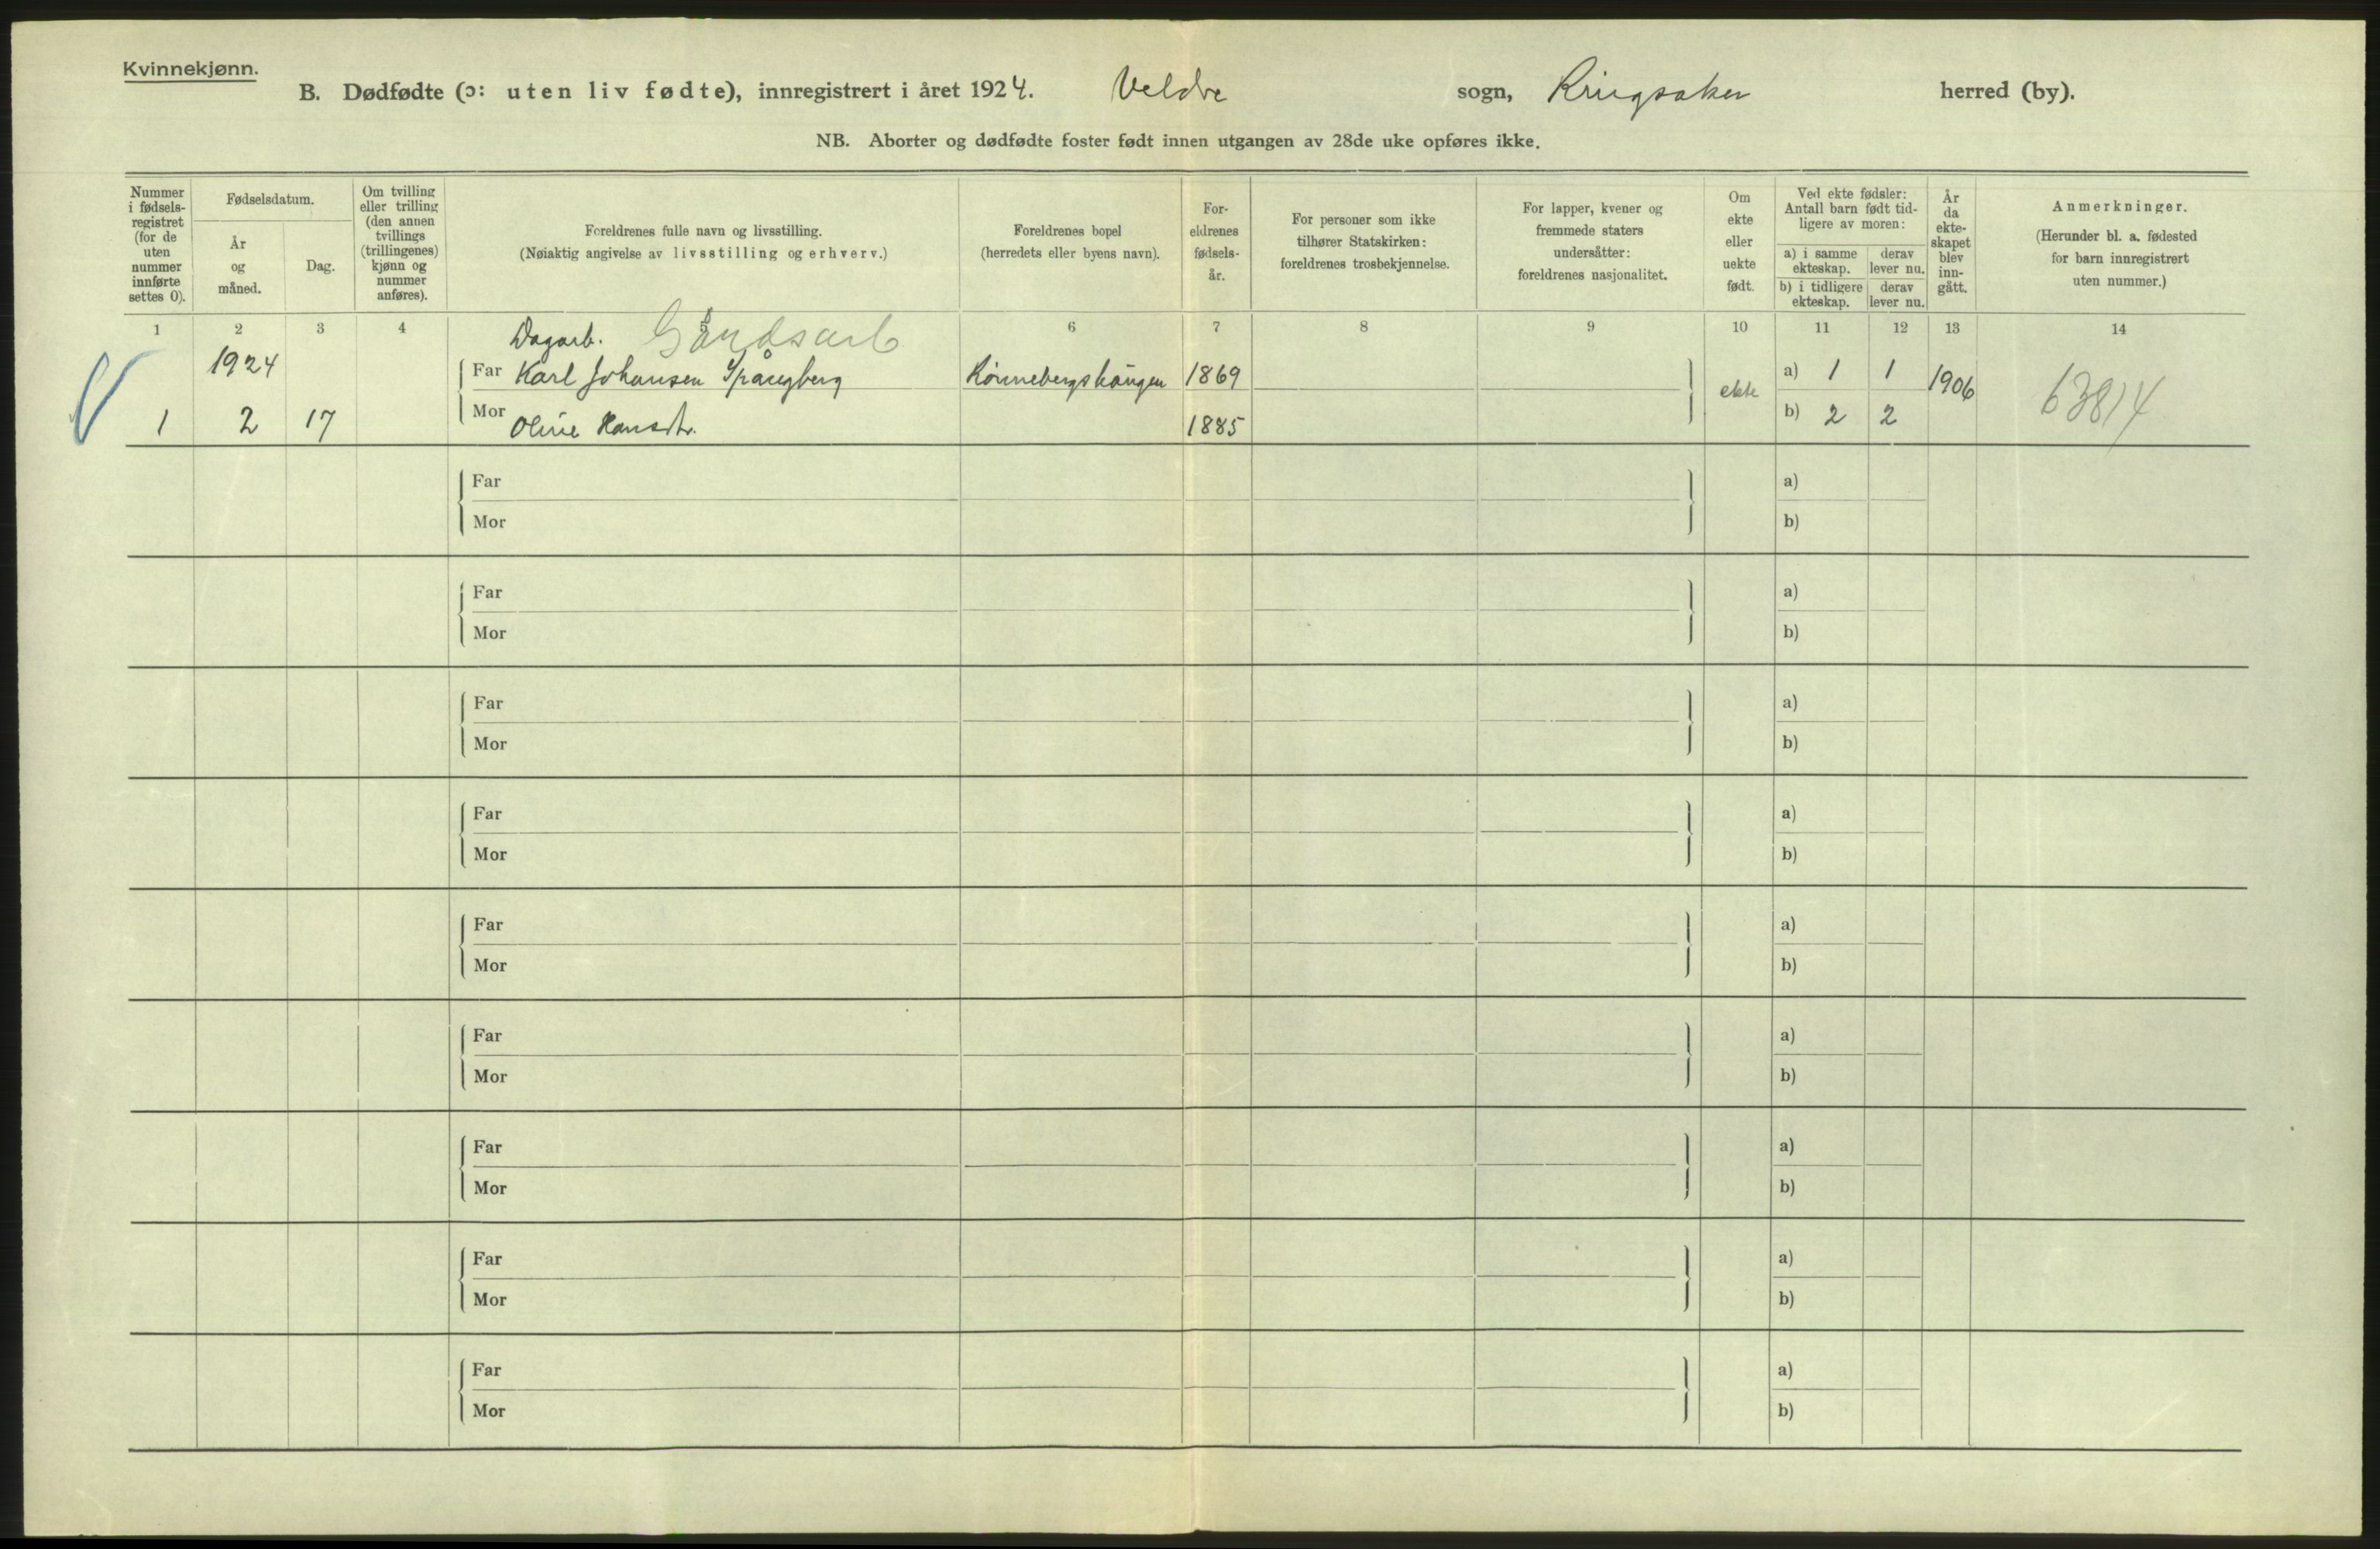 Kvinnekjønn.
B. Dødfødte (ɔ: uten liv fødte), innregistrert i året 1924. Veldre sogn, Ringsaker herred (by).
NB. Aborter og dødfødte foster født innen utgangen av 28de uke opføres ikke.
Nummer
i fødsels-
registret
(for de
uten
nummer
innførte
settes 0).
Fødselsdatum.
År
og
måned.
Dag.
Om tvilling
eller trilling
(den annen
tvillings
(trillingenes)
kjønn og
nummer
anføres).
Foreldrenes fulle navn og livsstilling.
(Nøiaktig angivelse av livsstilling og erhverv.)
Foreldrenes bopel
(herredets eller byens navn).
For-
eldrenes
fødsels-
år.
For personer som ikke
tilhører Statskirken:
foreldrenes trosbekjennelse.
For lapper, kvener og
fremmede staters
undersåtter:
foreldrenes nasjonalitet.
Om
ekte
eller
uekte
født.
Ved ekte fødsler:
Antall barn født tid-
ligere av moren:
a) i samme
ekteskap.
derav
lever nu.
b) i tidligere
ekteskap.
derav
lever nu.
År
da
ekte-
skapet
blev
inn-
gått.
Anmerkninger.
(Herunder bl. a. fødested
for barn innregistrert
uten nummer.)
1 2 3 4 6 7 8 9 10 11 12 13 14
Dagarb. Gårdsarb
1924 Far Karl Johansen Spångberg 1869 ekte a) 1 1 1906 63814
1 2 17 Mor Oline Hansdtr. 1885 b) 2 2
Far a)
Mor b)
Far a)
Mor b)
Far a)
Mor b)
Far a)
Mor b)
Far a)
Mor b)
Far a)
Mor b)
Far a)
Mor b)
Far a)
Mor b)
Far a)
Mor b)